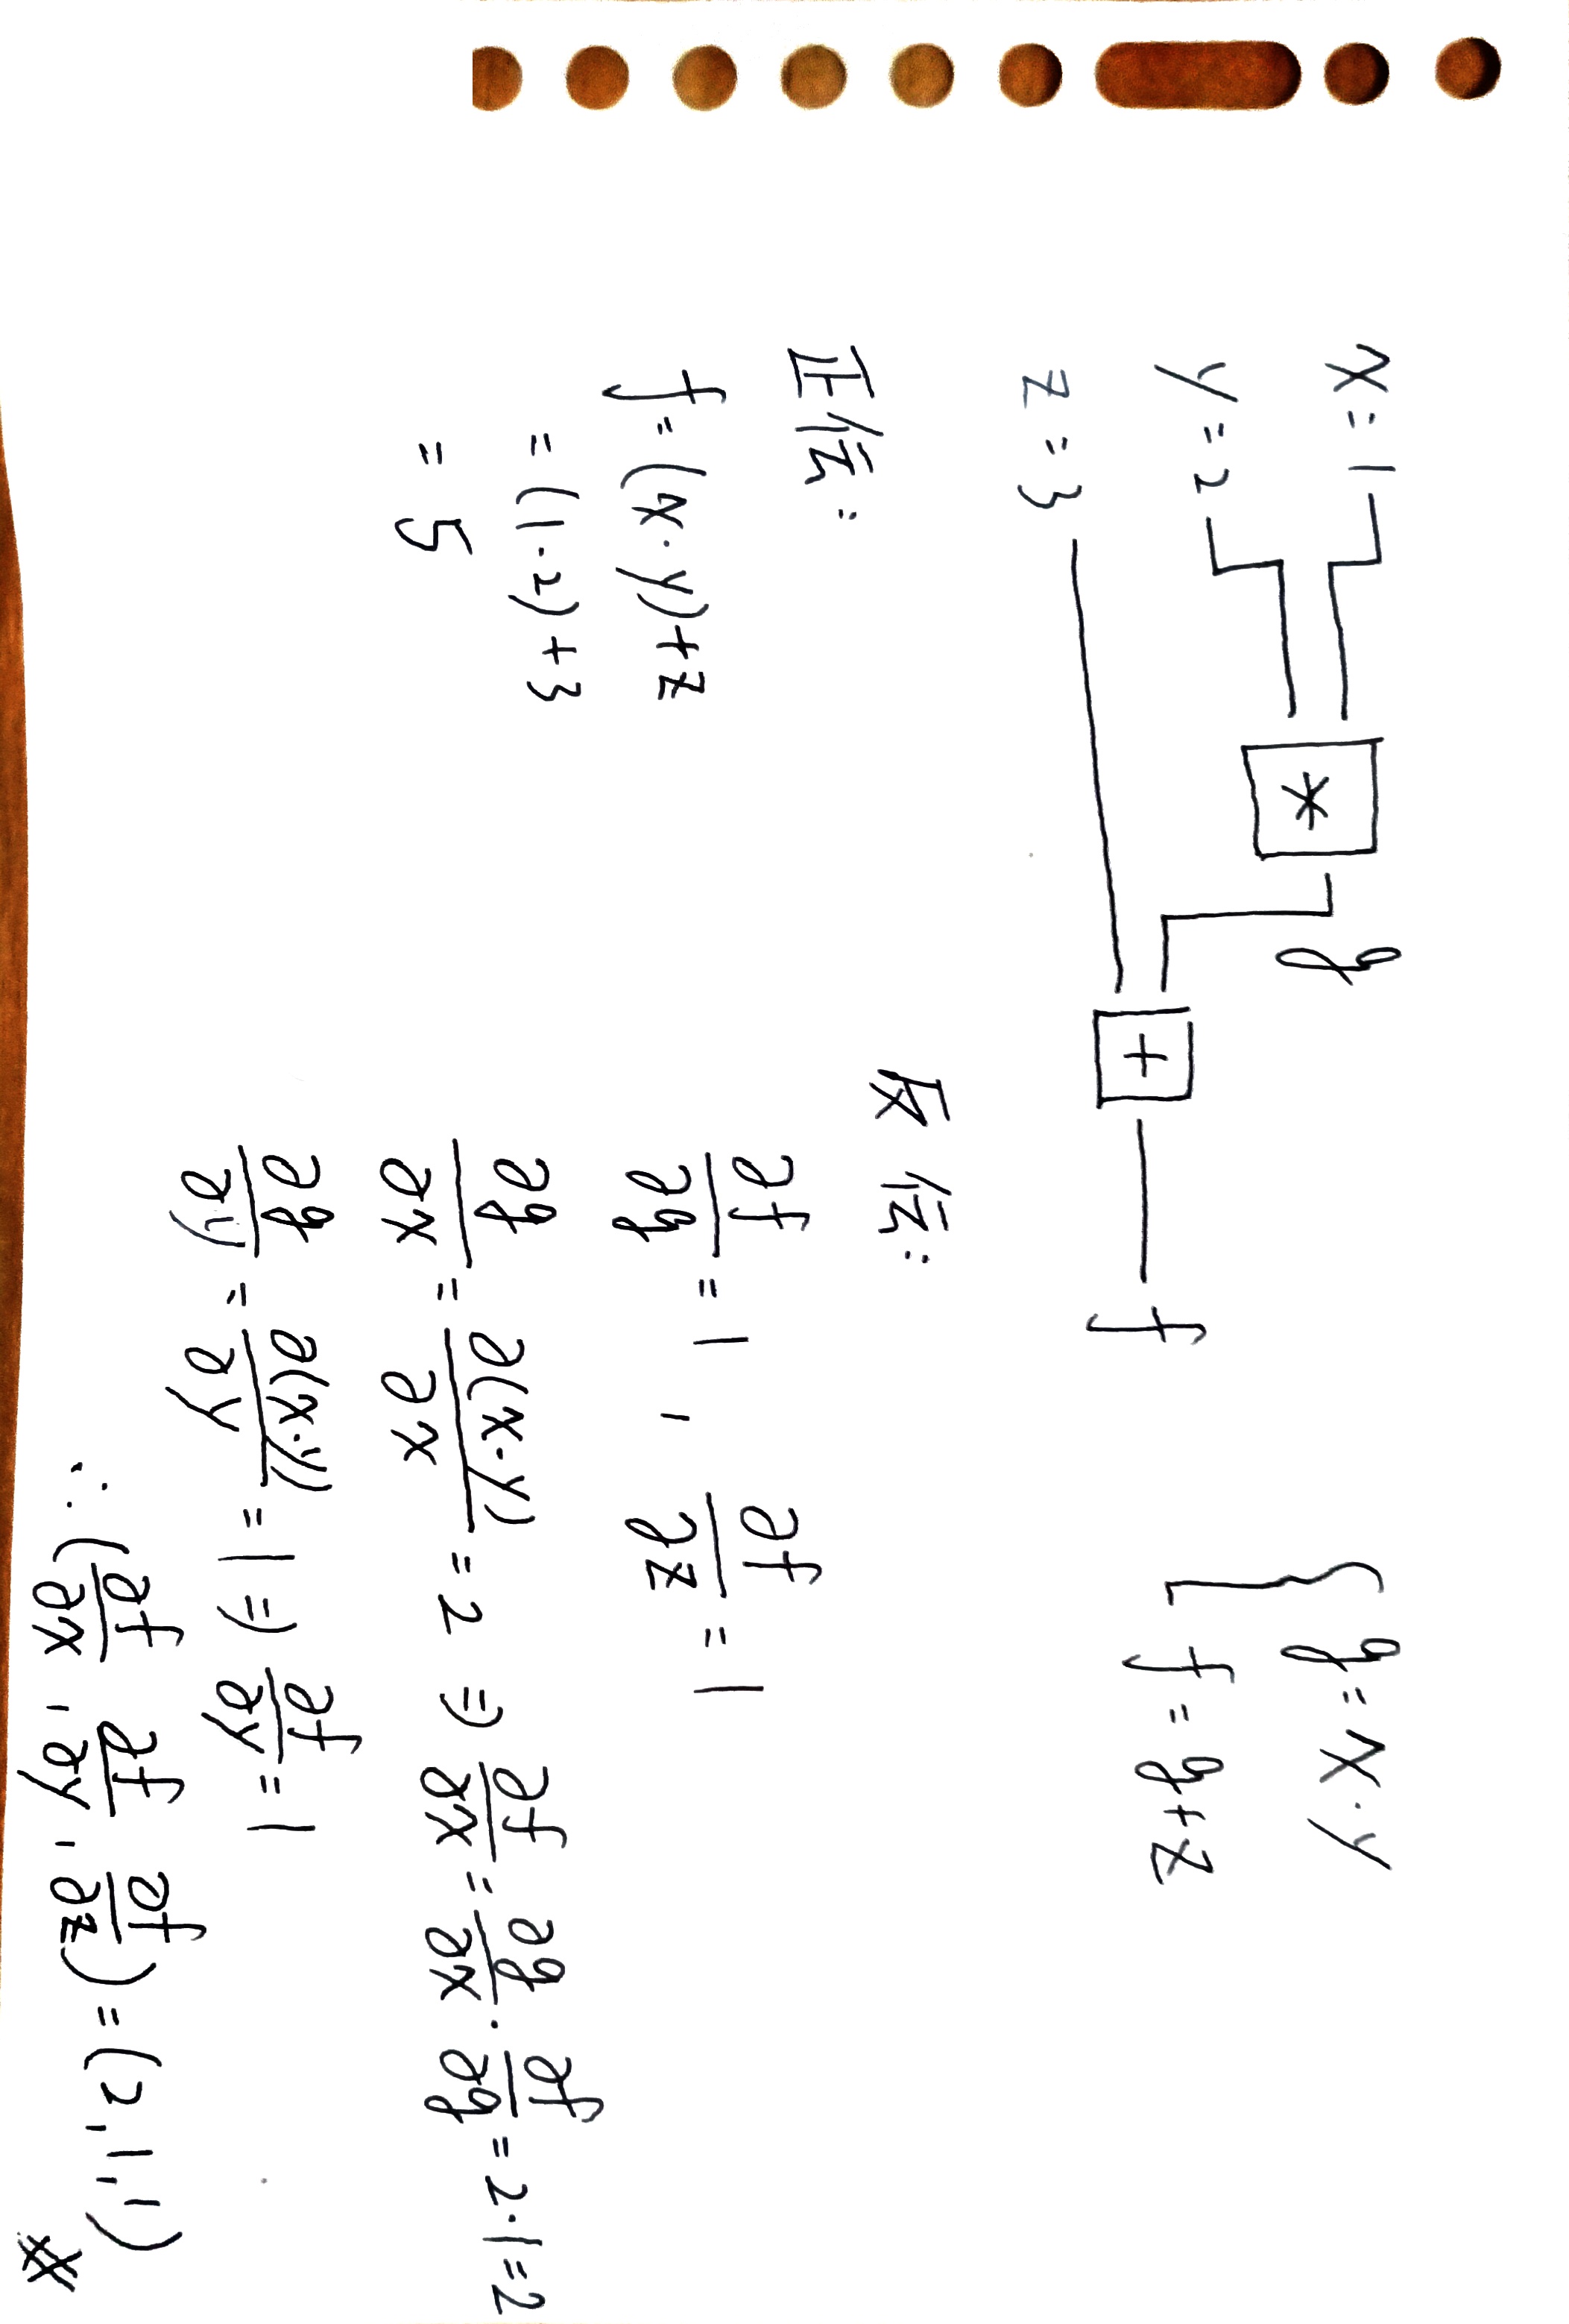 x = 1
y = 2
z = 3
*
g
+
f
{ g = x · y
f = g + z
正傳：
f = (x · y) + z
= (1 · 2) + 3
= 5
反傳：
∂f/∂g = 1 , ∂f/∂z = 1
∂g/∂x = ∂(x · y)/∂x = 2 ⇒ ∂f/∂x = ∂g/∂x · ∂f/∂g = 2 · 1 = 2
∂g/∂y = ∂(x · y)/∂y = 1 ⇒ ∂f/∂y = 1
∴ (∂f/∂x , ∂f/∂y , ∂f/∂z) = (2, 1, 1) #